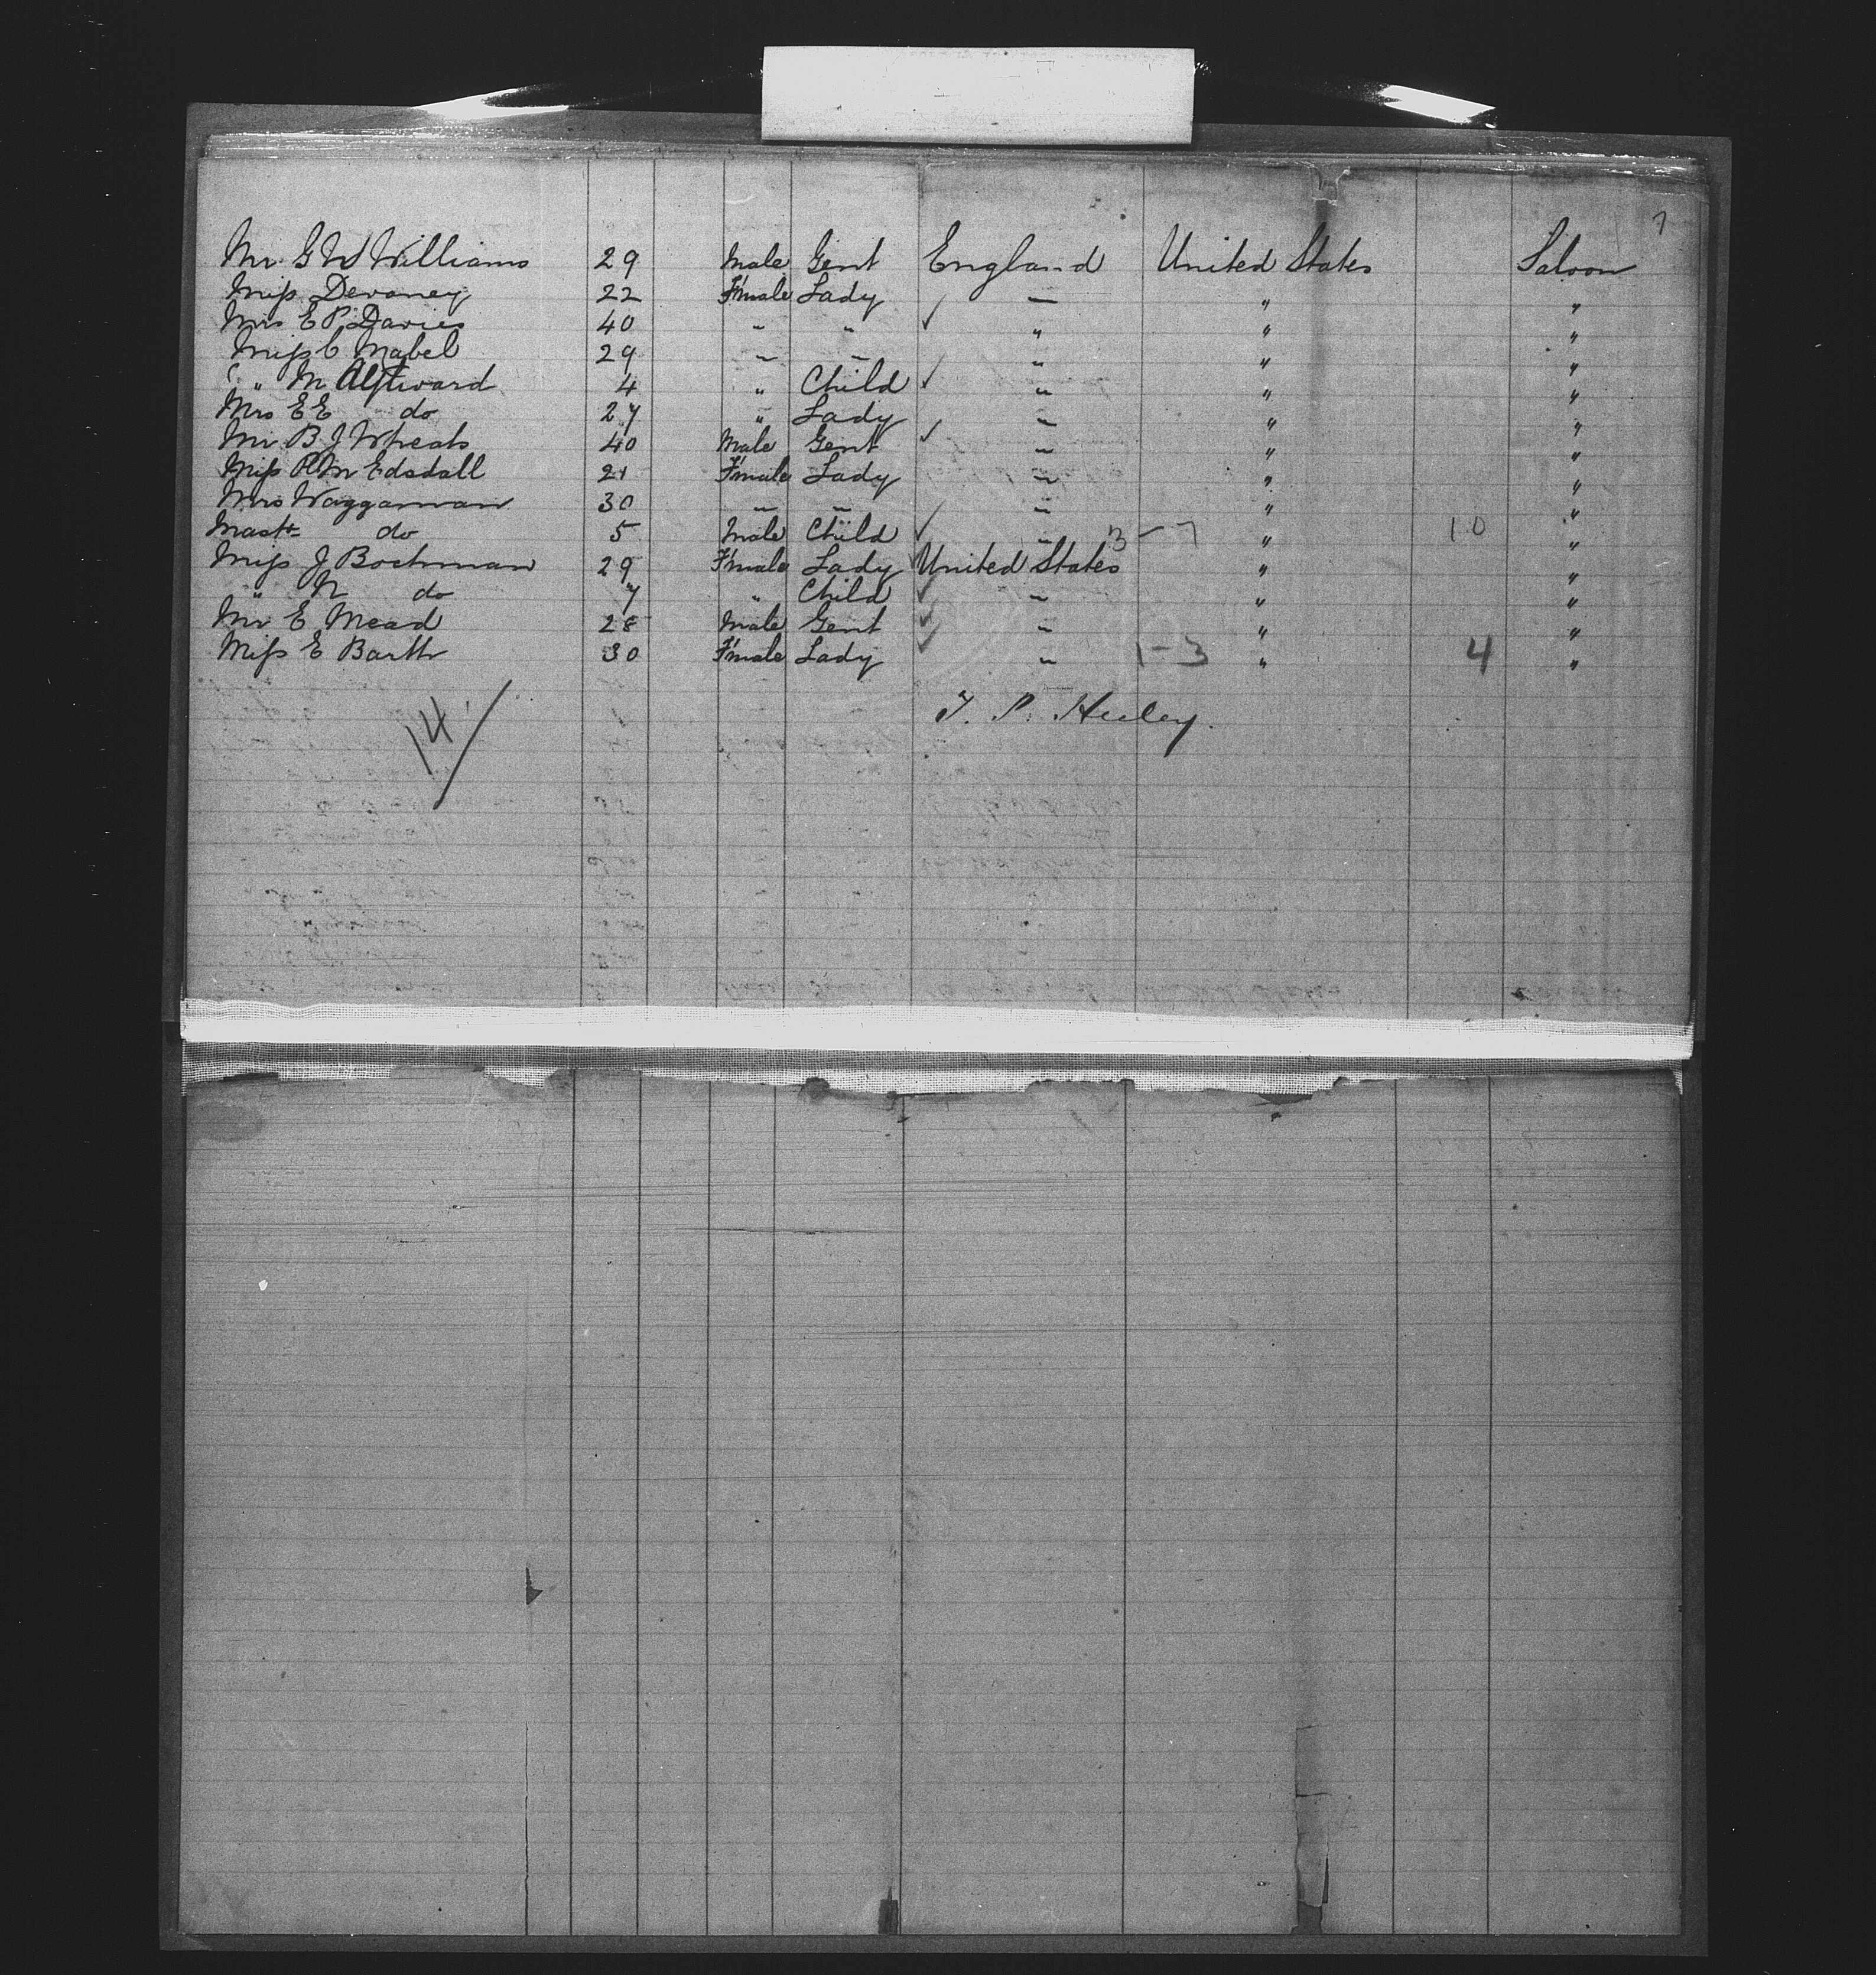 7
Mr G W Williams 29 Male Gent England United States Saloon
Miss Devaney 22 F'male Lady " " "
Mrs E P Davies 40 " " " " "
Miss C Mabel 29 " " " " "
" M Aylward 4 " Child " " "
Mrs E E do 27 " Lady " " "
Mr B J Wheats 40 Male Gent " " "
Miss M Edsdall 21 F'male Lady " " "
Mrs Waggaman 30 " " " " "
Mast do 5 Male Child " 3-7 " 10 "
Miss J Bochman 29 F'male Lady United States " "
" N do 7 " Child " " "
Mr E Mead 28 Male Gent " " "
Miss E Barth 30 F'male Lady " 1-3 " 4 "
14/
P. Heeley.